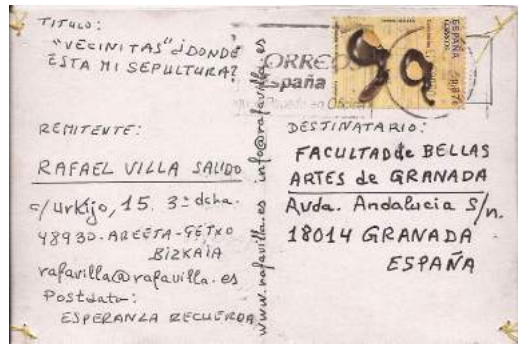 TITULO:
"VECINITAS" ¿DONDE
ESTA MI SEPULTURA?
REMITENTE:
RAFAEL VILLA SALIDO
c/ Urkijo, 15. 3º dcha.
48930-AREETA-GETXO
BIZKAIA
rafavilla@rafavilla.es
Postdata:
ESPERANZA RECUERDA
www.rafavilla.es info@rafavilla.es
ORREO
España
ESPAÑA
CORREOS
DESTINATARIO:
FACULTAD de BELLAS
ARTES de GRANADA
Avda. Andalucia S/n.
18014 GRANADA
ESPAÑA